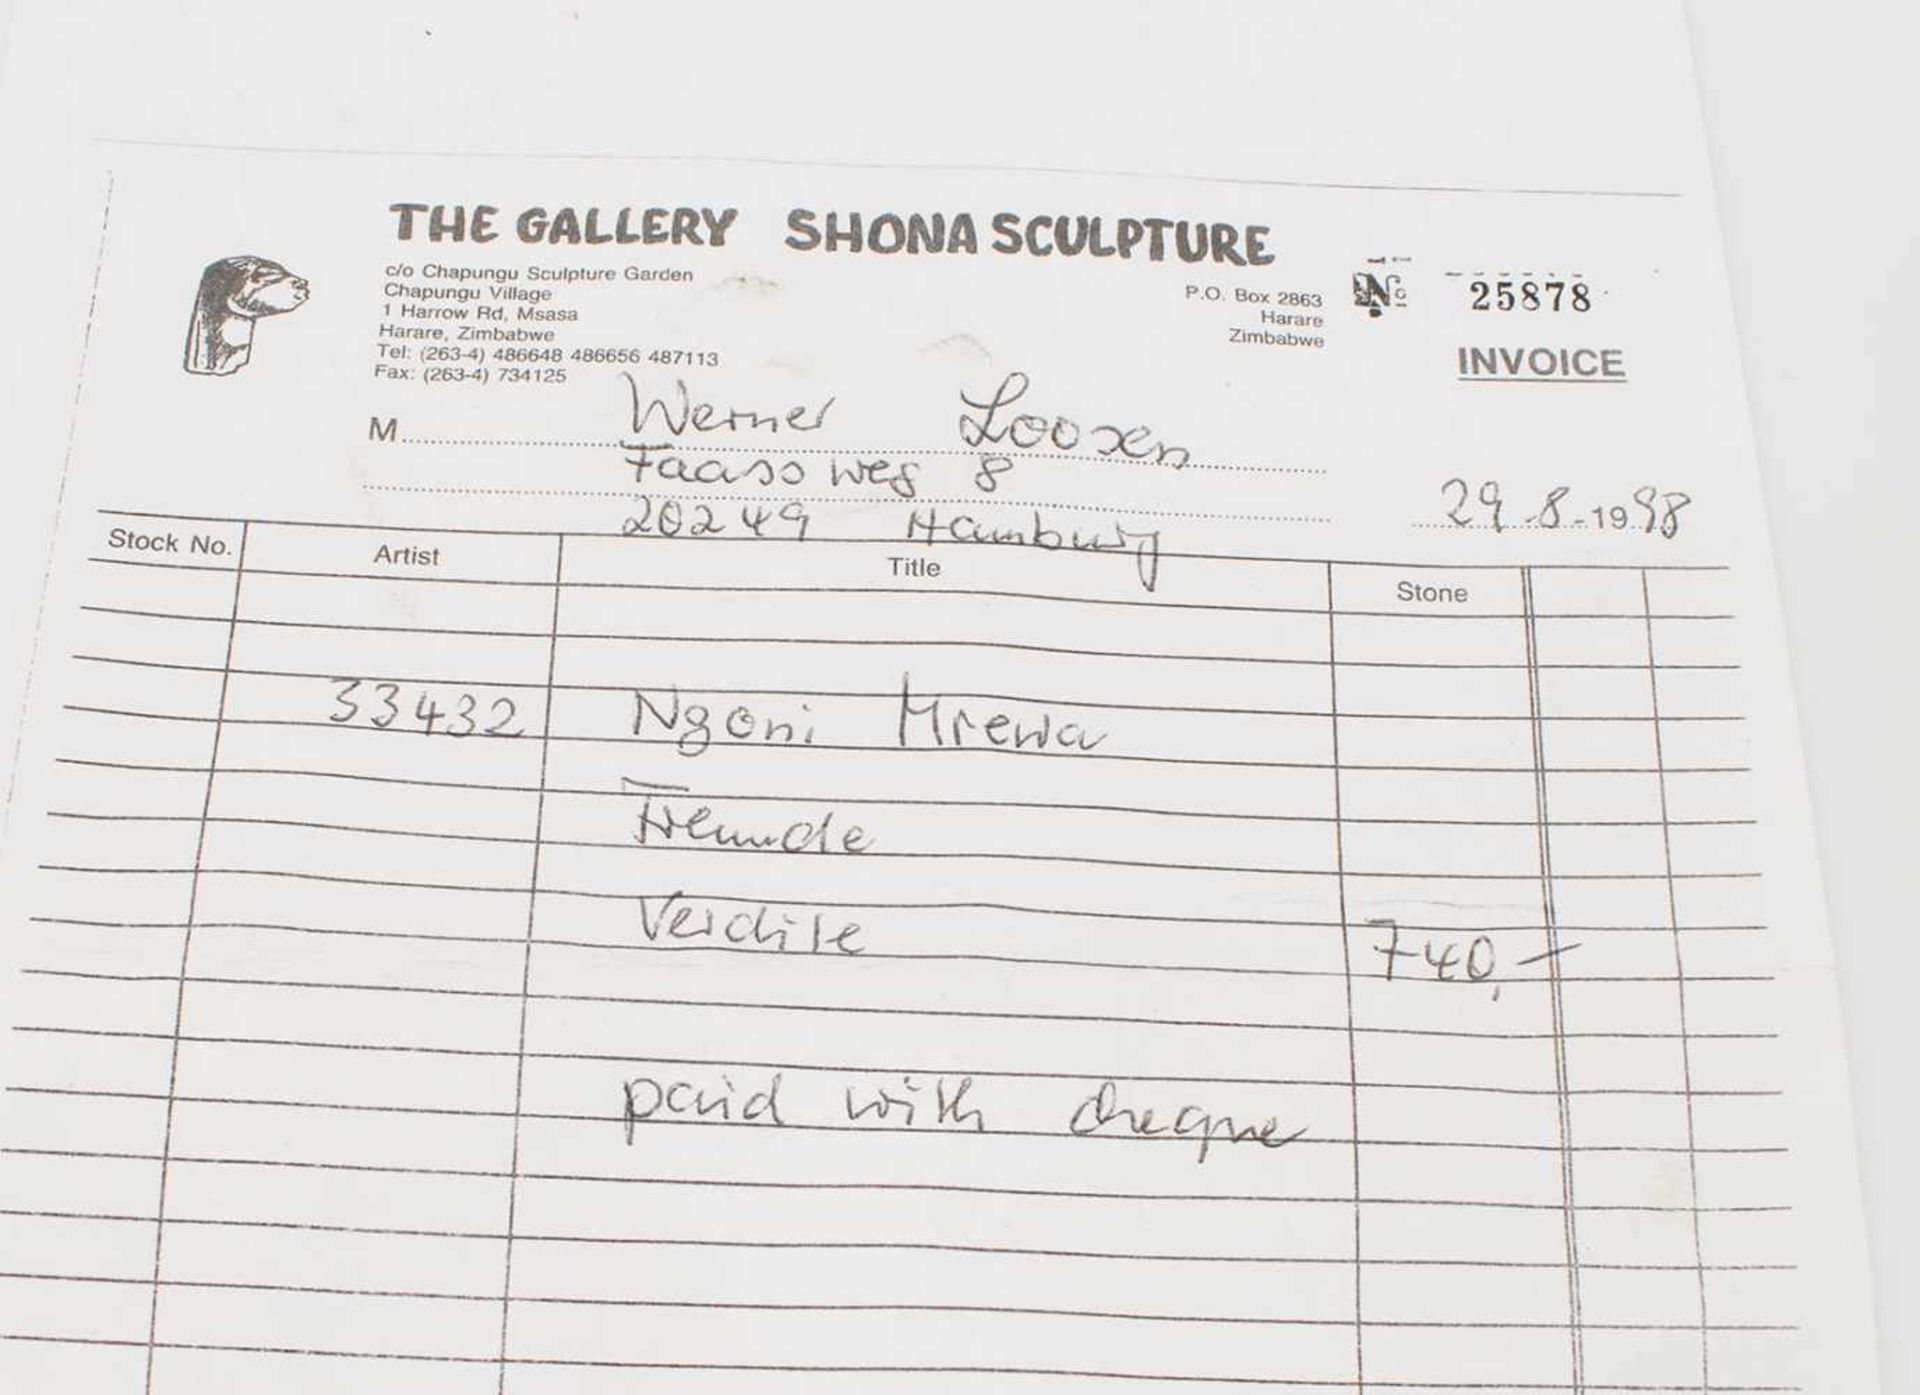 THE GALLERY SHONA SCULPTURE
c/o Chapungu Sculpture Garden
Chapungu Village
1 Harrow Rd, Msasa
Harare, Zimbabwe
Tel: (263-4) 486648 486656 487113
Fax: (263-4) 734125
P.O. Box 2863
Harare
Zimbabwe
No 25878
INVOICE
M Werner Loosen
Faassweg 8
20249 Hamburg
29.8.1998
Stock No. Artist Title Stone
33432 Ngoni Mrewa
Freunde
Verdite 740,-
paid with cheque